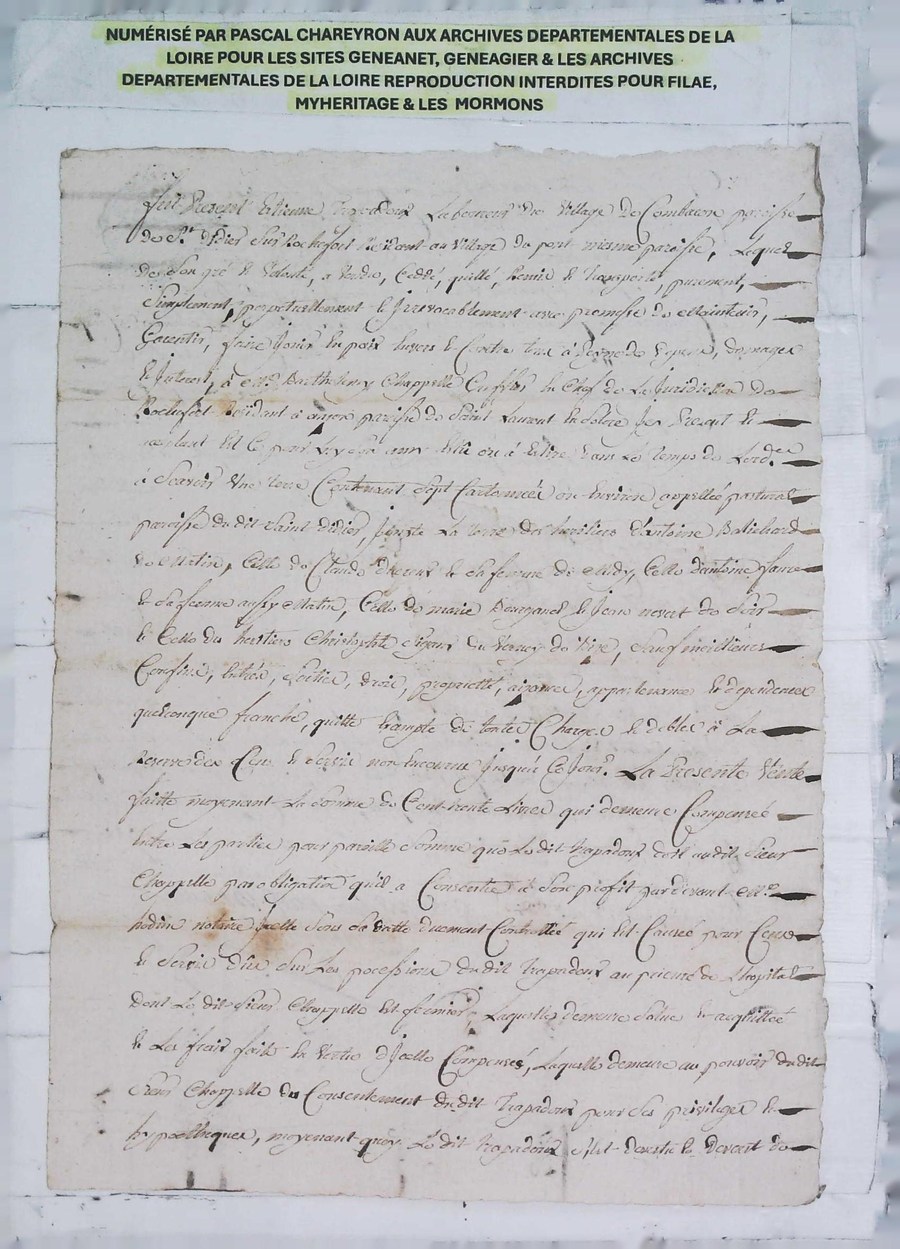 NUMÉRISÉ PAR PASCAL CHAREYRON AUX ARCHIVES DEPARTEMENTALES DE LA
LOIRE POUR LES SITES GENEANET, GENEAGIER & LES ARCHIVES
DEPARTEMENTALES DE LA LOIRE REPRODUCTION INTERDITES POUR FILAE,
MYHERITAGE & LES MORMONS
fut Present Etienne trapadoux Laboureur du Village de paroisse
de St didier Sur Rochefort Residant au Village du pont mesme paroisse, Lequel
de Son gré et Volonté, a Vendu, Ceddé, quitté, Remis et transporté, purement,
Simplement, perpetuellement et Jrrevocablement avec promesse de Maintenir,
Garentir, faire Jouir en paix Envers et Contre tous à peyne de depens, domages
et Jnterest, à Me Barthelemy Chappelle Greffier en Chef de La Juridiction de
Rochefort Residant à paroisse de Saint Laurent Jcy Present et
acceptant Et Ce pour Luy ou à Elire dans Le temps de Lord.ce
à Scavoir Une terre Contenant Sept Cartonnées ou Environ appellée
paroisse du dit Saint didier Jouxte La terre des heritiers d'antoine
de Matin, Celle de Claude et Sa femme de Celle d'antoine
et Sa femme aussy Matin, Celle de marie et Jean de
et Celle des heritiers Christophle du Verney de Sauf meilleurs
Confins, Entrés, Sorties, droits, proprietté, aizances, appartenances et dependences
quelconque franche, quitte Exampte de toutes Charges et debtes à La
Reserve des Cens et Servis non Encourus Jusqu'à Ce Jour. La Presente Vente
faitte moyenant La Somme de Cent trente Livres qui demeure Compensée
Entre Les parties pour pareille Somme que Le dit trapadoux doit audit Sieur
Chappelle par obligation qu'il a Consentie à Son profit pardevant Me
notaire Jcelle Sous Sa datte duement Controllée qui Est Causée pour Cens
et Servis dûs Sur Les possessions du dit trapadoux au prieuré de L'hopital
dont Le dit Sieur Chappelle Est fermier, Laquelle demeure Solue et acquittée
et Les frais faits En Vertu d'Jcelle Compensés, Laquelle demeure au pouvoir du dit
Sieur Chappelle du Consentement du dit trapadoux pour Ses privileges et
hypotheques, moyenant quoy Le dit trapadoux S'est devestu et devest de